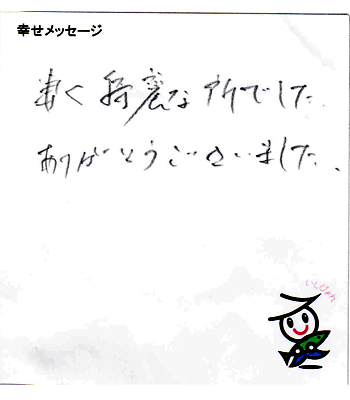 幸せメッセージ
凄く綺麗な所でした.
ありがとうございました.